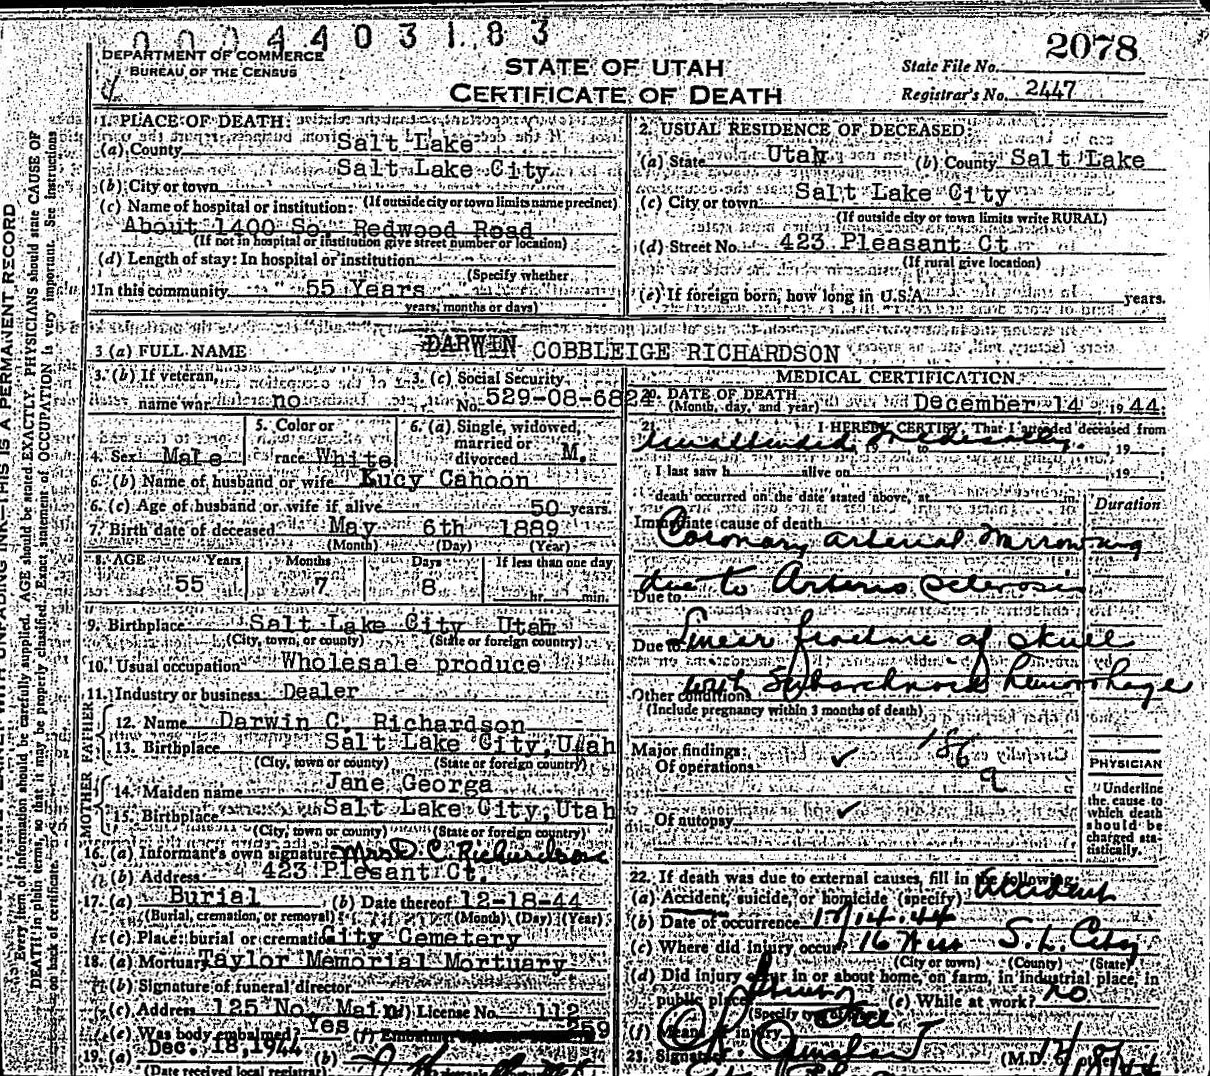 00044031.83
2078
DEPARTMENT OF COMMERCE
BUREAU OF THE CENSUS
STATE OF UTAH
CERTIFICATE OF DEATH
State File No.
Registrar's No. 2447
1. PLACE OF DEATH:
(a) County Salt Lake
Salt Lake City
(b) City or town
(If outside city or town limits name precinct)
(c) Name of hospital or institution:
About 1400 So. Redwood Road
(If not in hospital or institution give street number or location)
(d) Length of stay: In hospital or institution
(Specify whether
In this community 55 Years
years, months or days)
2. USUAL RESIDENCE OF DECEASED:
(a) State Utah (b) County Salt Lake
(c) City or town Salt Lake City
(If outside city or town limits write RURAL)
(d) Street No. 423 Pleasant Ct
(If rural give location)
(e) If foreign born, how long in U.S.A. years.
3 (a) FULL NAME DARWIN COBBLEIGE RICHARDSON
3. (b) If veteran, name war no
3. (c) Social Security No. 529-08-6824
4. Sex Male
5. Color or race White
6. (a) Single, widowed, married or divorced M.
6. (b) Name of husband or wife Lucy Cahoon
6. (c) Age of husband or wife if alive 50 years
7. Birth date of deceased May 6th 1889
(Month) (Day) (Year)
8. AGE Years Months Days If less than one day
55 7 8 hr. min.
9. Birthplace Salt Lake City Utah
(City, town, or county) (State or foreign country)
10. Usual occupation Wholesale produce
11. Industry or business Dealer
FATHER
12. Name Darwin C. Richardson
13. Birthplace Salt Lake City, Utah
(City, town or county) (State or foreign country)
MOTHER
14. Maiden name Jane Georga
15. Birthplace Salt Lake City, Utah
(City, town or county) (State or foreign country)
16. (a) Informant's own signature Mrs D. C. Richardson
(b) Address 423 Plesant Ct.
17. (a) Burial (b) Date thereof 12-18-44
(Burial, cremation, or removal) (Month) (Day) (Year)
(c) Place: burial or cremation City Cemetery
18. (a) Mortuary Taylor Memorial Mortuary
(b) Signature of funeral director
(c) Address 125 No. Main (d) License No. 112
(e) Was body embalmed? Yes (f) Embalmer 259
19. (a) Dec. 18, 1944 (b)
(Date received local registrar)
MEDICAL CERTIFICATION
20. DATE OF DEATH
(Month, day, and year) December 14 1944
21. I HEREBY CERTIFY, That I attended deceased from
unattended medically. 19 , to , 19
I last saw h alive on 19
death occurred on the date stated above, at m.
Duration
Immediate cause of death
Coronary arterial narrowing
due to Arterio sclerosis
Due to
Due to Linear fracture of skull
with Subarachnoid hemorrhage
Other conditions
(Include pregnancy within 3 months of death)
Major findings:
Of operations
Of autopsy
PHYSICIAN
Underline the cause to which death should be charged statistically.
22. If death was due to external causes, fill in the following:
(a) Accident, suicide, or homicide (specify) Accident
(b) Date of occurrence 12/14-44
(c) Where did injury occur? S. L. City
(City or town) (County) (State)
(d) Did injury occur in or about home, on farm, in industrial place, in
public place (e) While at work? no
(Specify type of place)
(f) Means of injury
23. Signature (M.D. or other)
PHYSICIANS should state CAUSE OF
DEATH in plain terms, so that it may be properly classified. Exact statement of OCCUPATION is very important. See instructions
on back of certificate
Every item of information should be carefully supplied. AGE should be stated EXACTLY.
UNFADING INK—THIS IS A PERMANENT RECORD